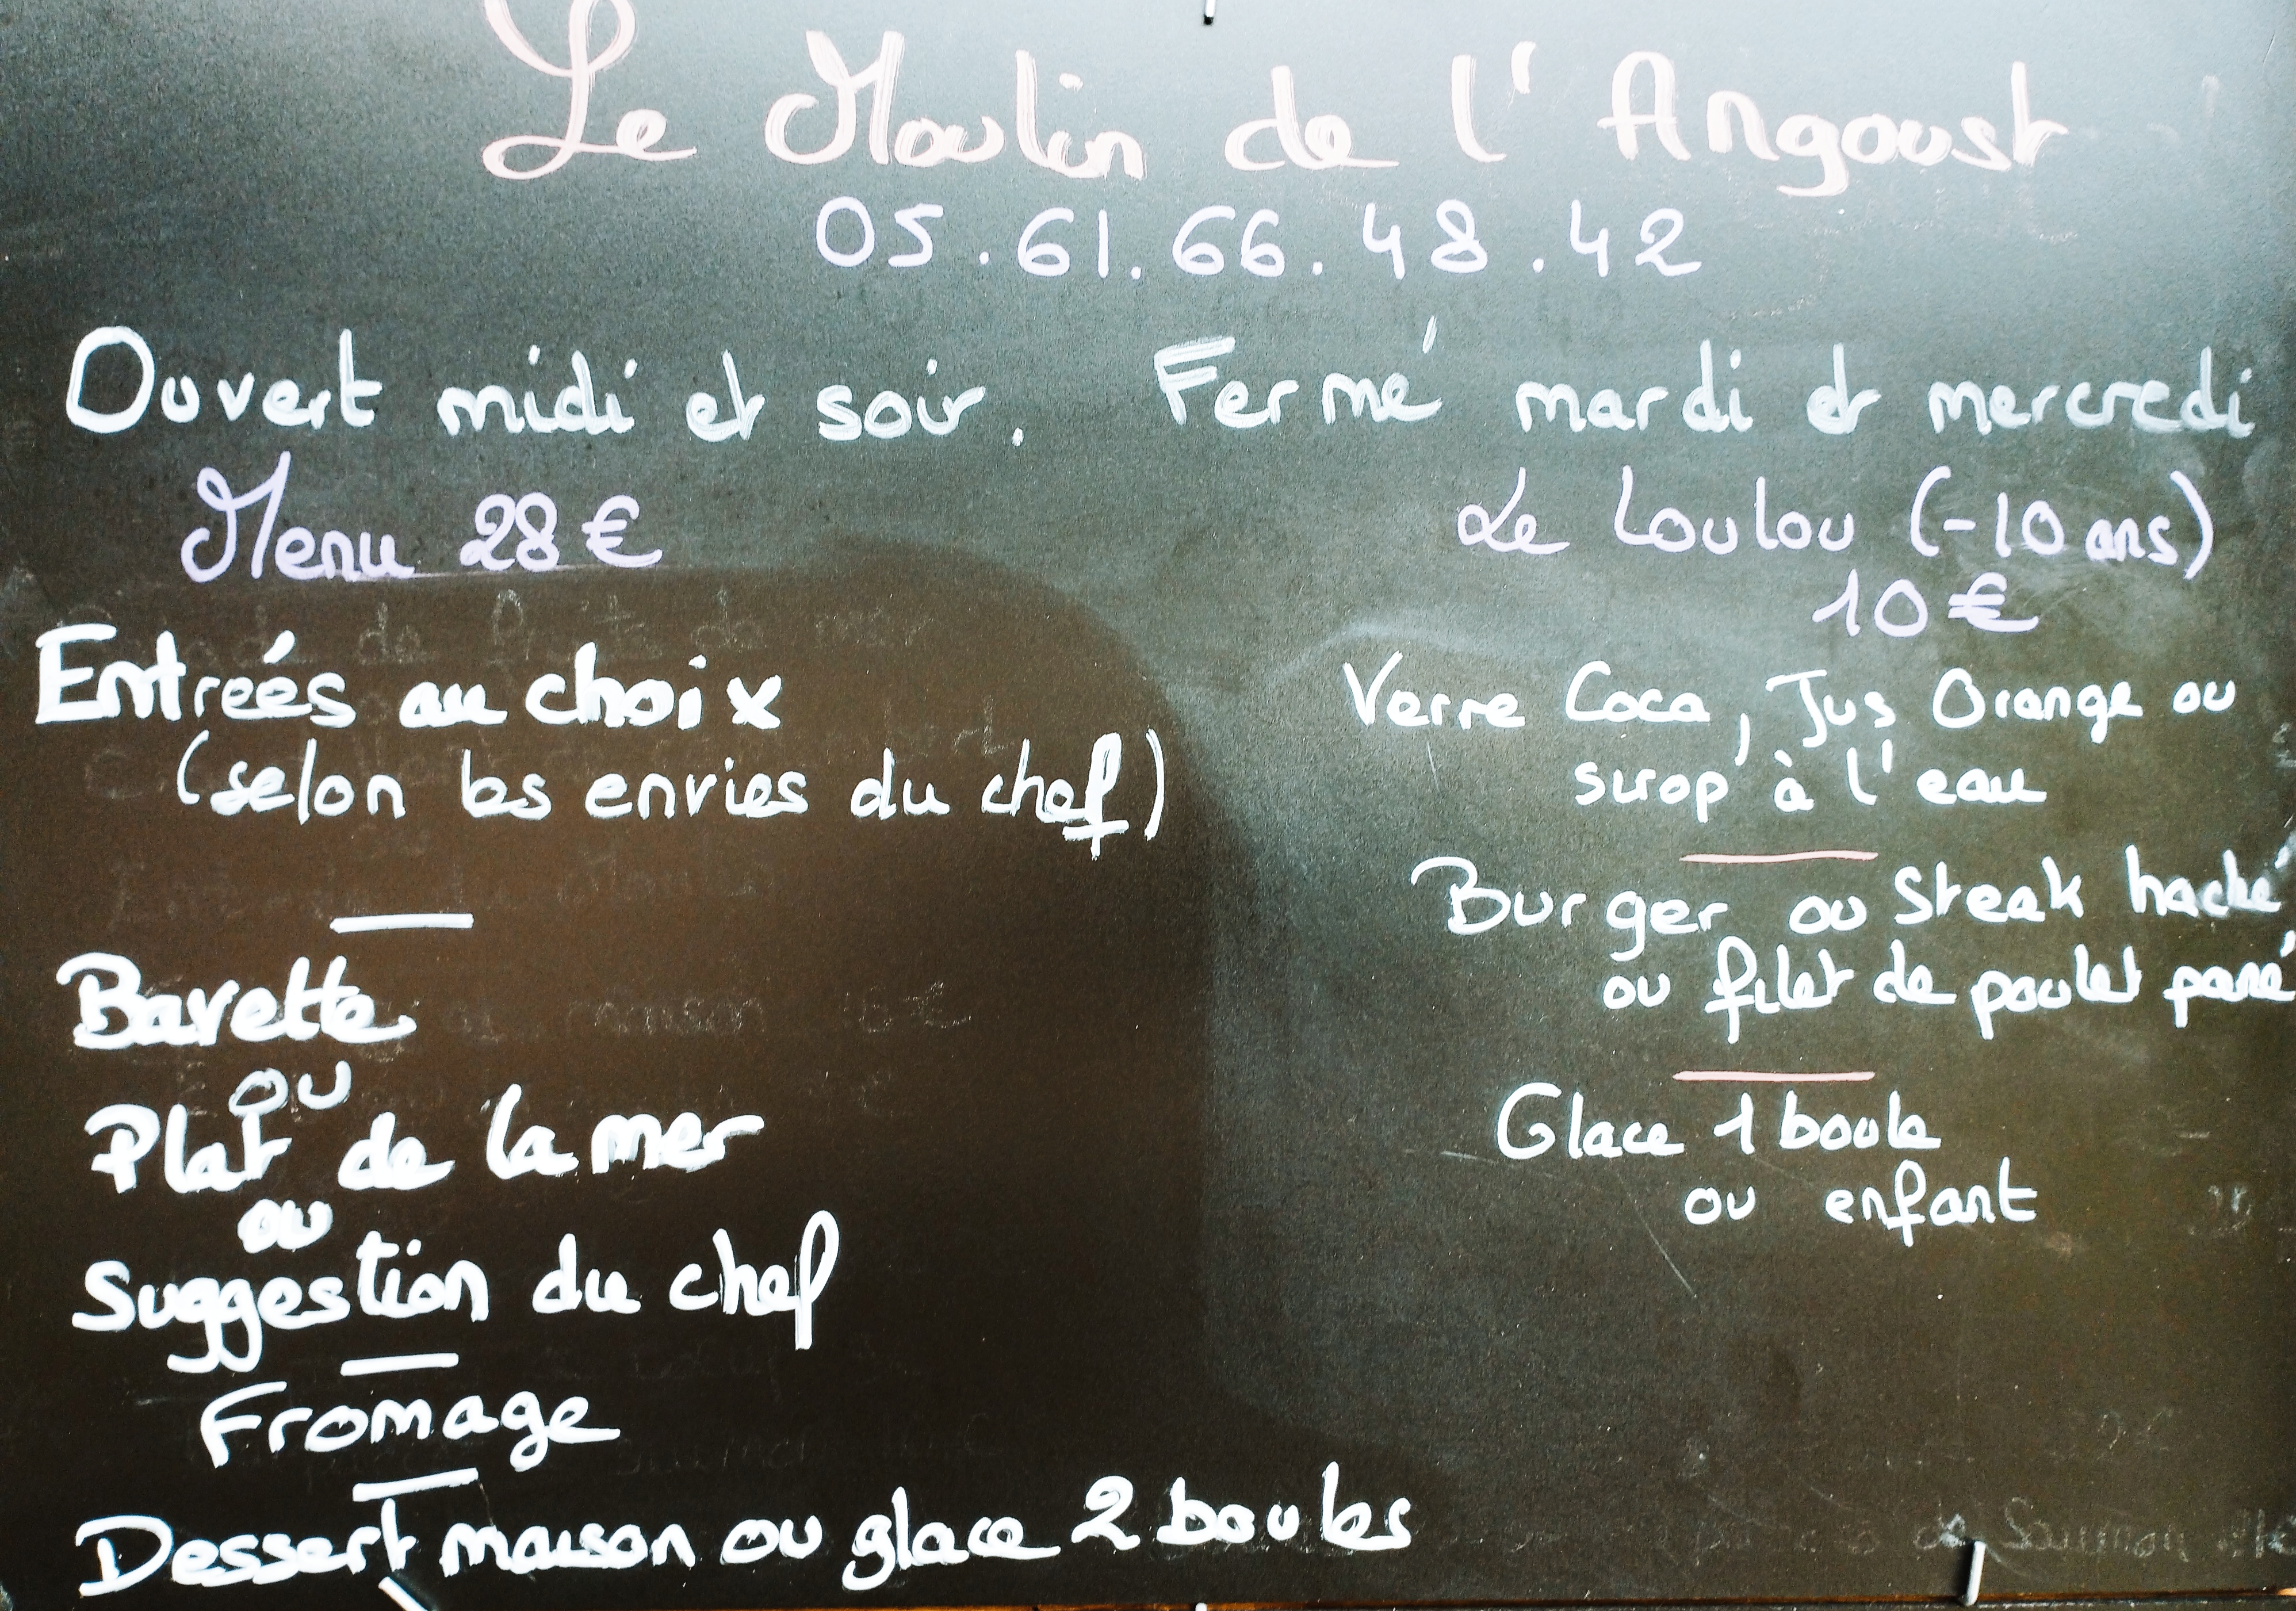 Le Moulin de l'Angoust
05.61.66.48.42
Ouvert midi et soir. Fermé mardi et mercredi
Menu 28€
Entrées au choix
(selon les envies du chef)
Bavette
ou
Plat de la mer
ou
Suggestion du chef
Fromage
Dessert maison ou glace 2 boules
Le Loulou (-10 ans)
10€
Verre Coca, Jus Orange ou
sirop à l'eau
Burger ou Steak haché
ou filet de poulet pané
Glace 1 boule
ou enfant